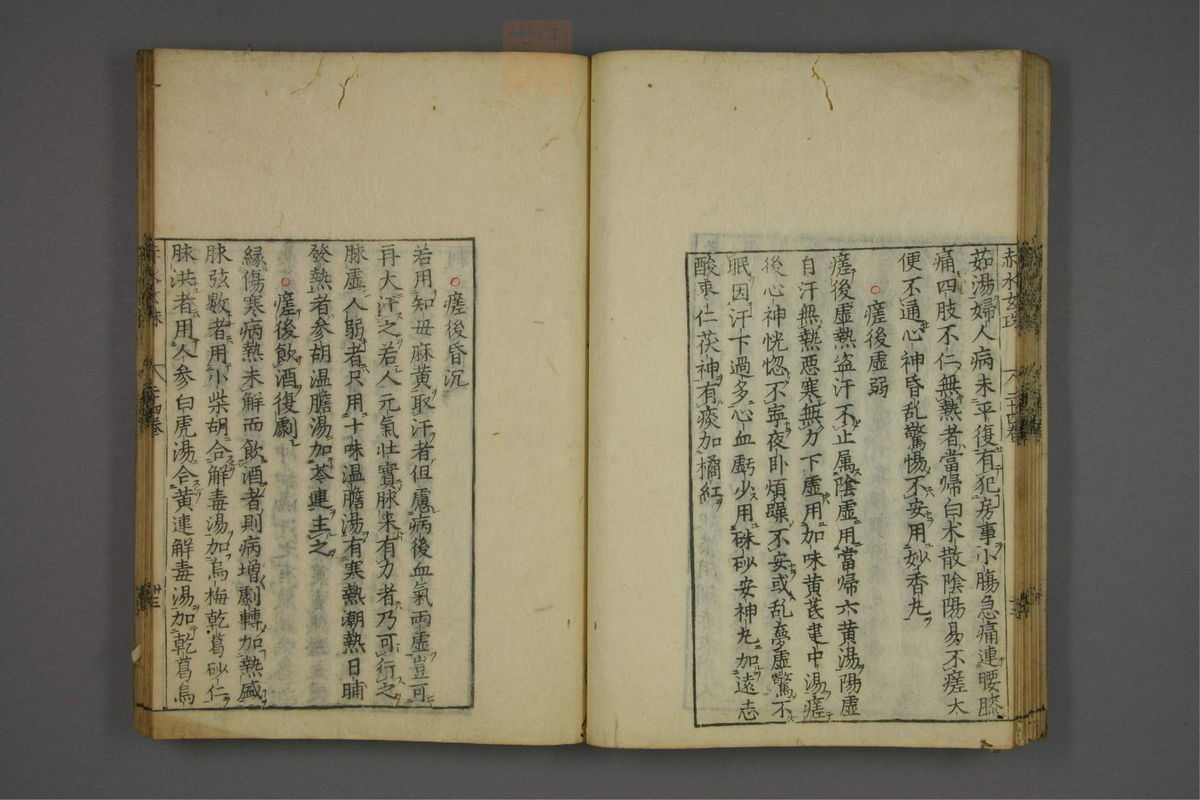 茹湯婦人病未平復有犯房事小腸急痛連腰膝
痛四肢不仁無熱者當帰白术散陰陽易不瘥大
便不通心神昏乱驚惕不安用妙香丸
瘥後虛弱
瘥後虛熱盗汗不止属陰虛用當帰六黄湯陽虛
自汗無熱悪寒無力下虛用加味黄芪建中湯瘥
後心神恍惚不寧夜卧煩躁不安或乱夢虛驚不
眠因汗下過多心血虧少用硃砂安神丸加遠志
酸枣仁茯神有痰加橘紅
瘥後昏沉
若用知母麻黄取汗者但慮病後血氣両虛豈可
再大汗之若人元氣壮實脉来有力者乃可行之
脉虛人弱者只用十味温膽湯有寒熱潮熱日晡
發熱者参胡温膽湯加芩連主之
瘥後飲酒復劇
縁傷寒病熱未解而飲酒者則病增劇轉加熱盛
脉弦数者用小柴胡合解毒湯加烏梅乾葛砂仁
脉洪者用人参白虎湯合黄連解毒湯加乾葛烏